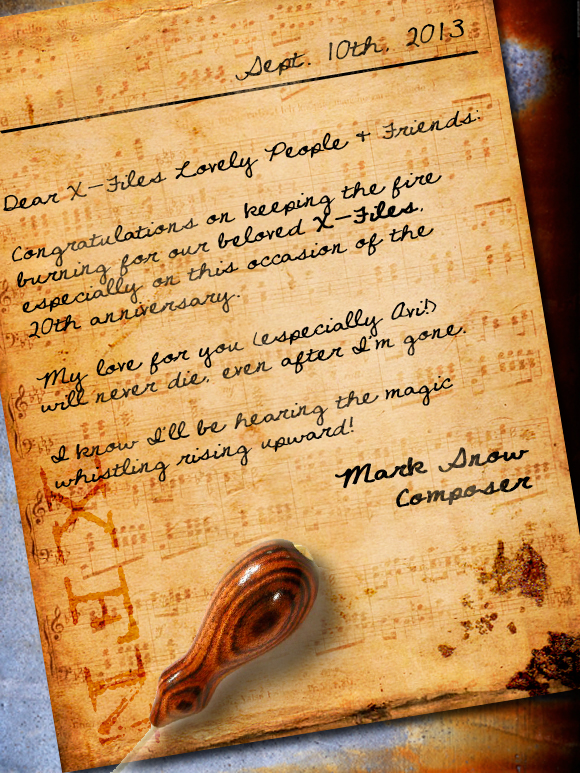 Sept. 10th, 2013
Dear X-Files Lovely People & Friends:
Congratulations on keeping the fire
burning for our beloved X-Files,
especially on this occasion of the
20th anniversary.
My love for you (especially Avi!)
will never die, even after I'm gone.
I know I'll be hearing the magic
whistling rising upward!
Mark Snow
Composer
XFN